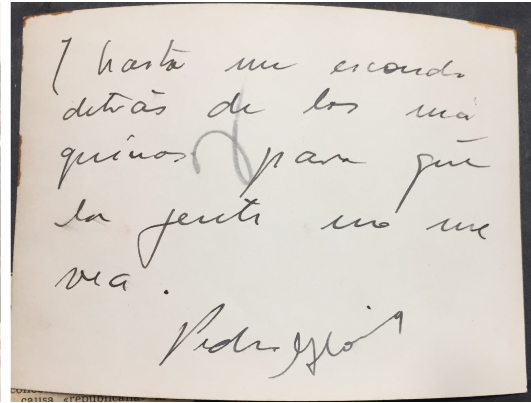 Y hasta me escondo
detrás de las má
quinas para que
la gente no me
vea.
Pedro
causa «republicana»